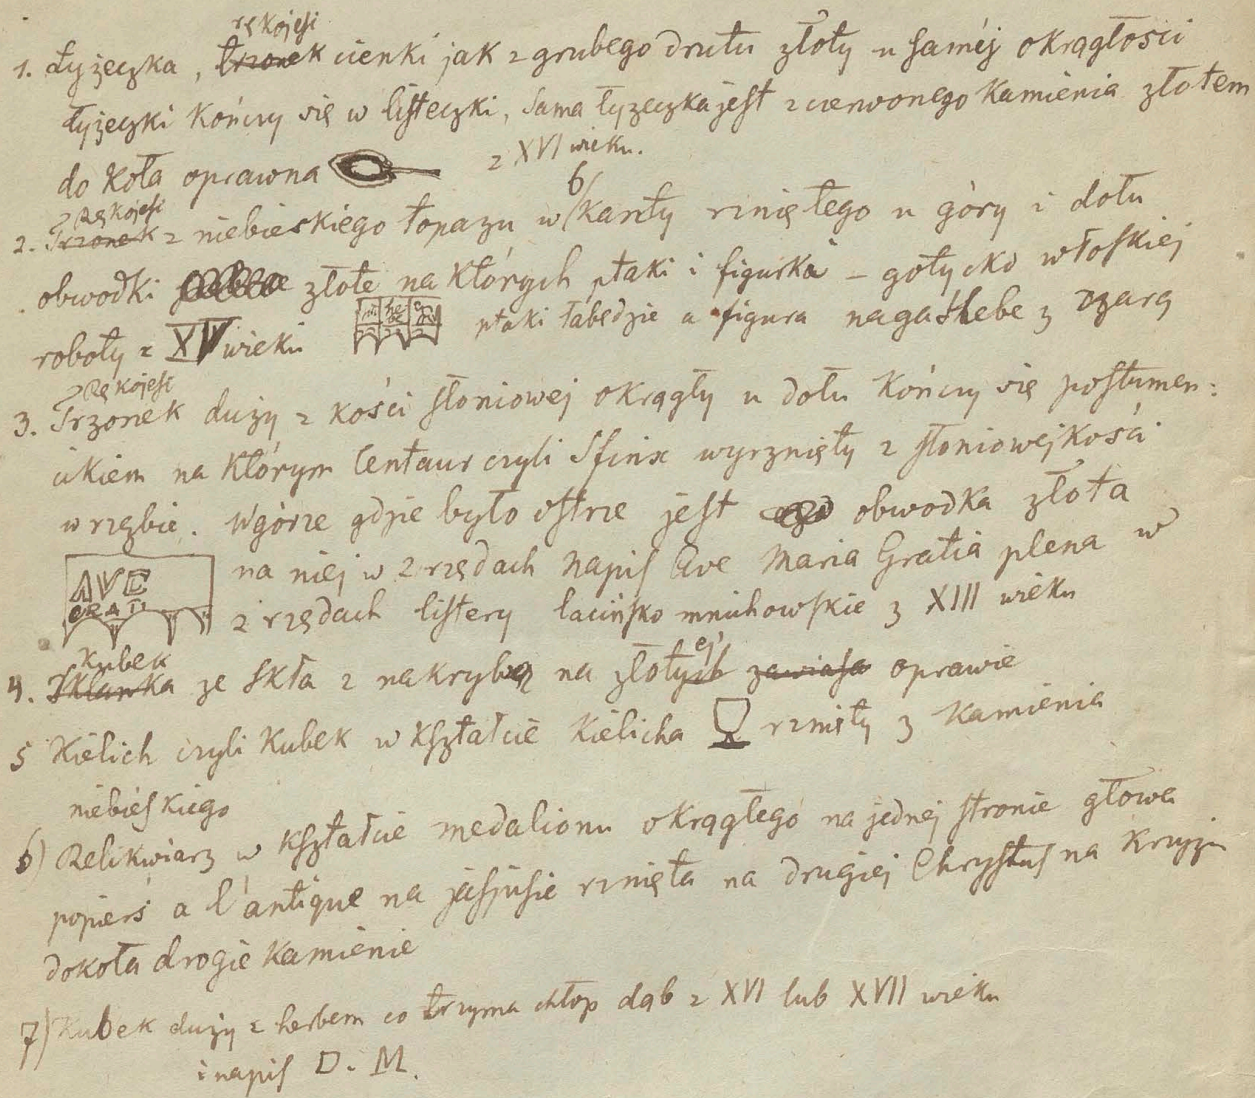 rękojeść
1. Łyżeczka, trzonek cienki jak z grubego drutu złoty u saméj okrągłości
łyżeczki kończy się w listeczki, sama łyżeczka jest z czerwonego kamienia złotem
do koła oprawna z XVI wieku.
Rękojeść 6
2. Trzonek z niebieskiego topazu w kanty rzniętego u góry i dołu
obwodki złote na których ptaki i figurka – gotycko włoskiej
roboty z XV wieku ptaki łabędzie a figura naga Hebe z czarą
Rękojeść
3. Trzonek duży z kości słoniowej okrągły u dołu kończy się postumen:
cikiem na którym Centaur czyli Sfinx wyrznięty z słoniowej kości
w rzeźbie. W górze gdzie było ostrze jest obwodka złota
na niej w 2 rzędach napis Ave Maria Gratia plena w
AVE
GRATI
2 rzędach litery łacińsko mnichowskie z XIII wieku
Kubek
4. Szklanka ze szkła z nakrywą na złotej zawiasa oprawie
5 Kielich czyli Kubek w kształcie kielicha rznięty z kamienia
niebieskiego
6) Relikwiarz w kształcie medalionu okrągłego na jednej stronie głowa
popierś a l'antique na jaspisie rznięta na drugiej Chrystus na krzyżu
dokoła drogie kamienie
7) Kubek duży z herbem co trzyma chłop dąb z XVI lub XVII wieku
i napis D. M.